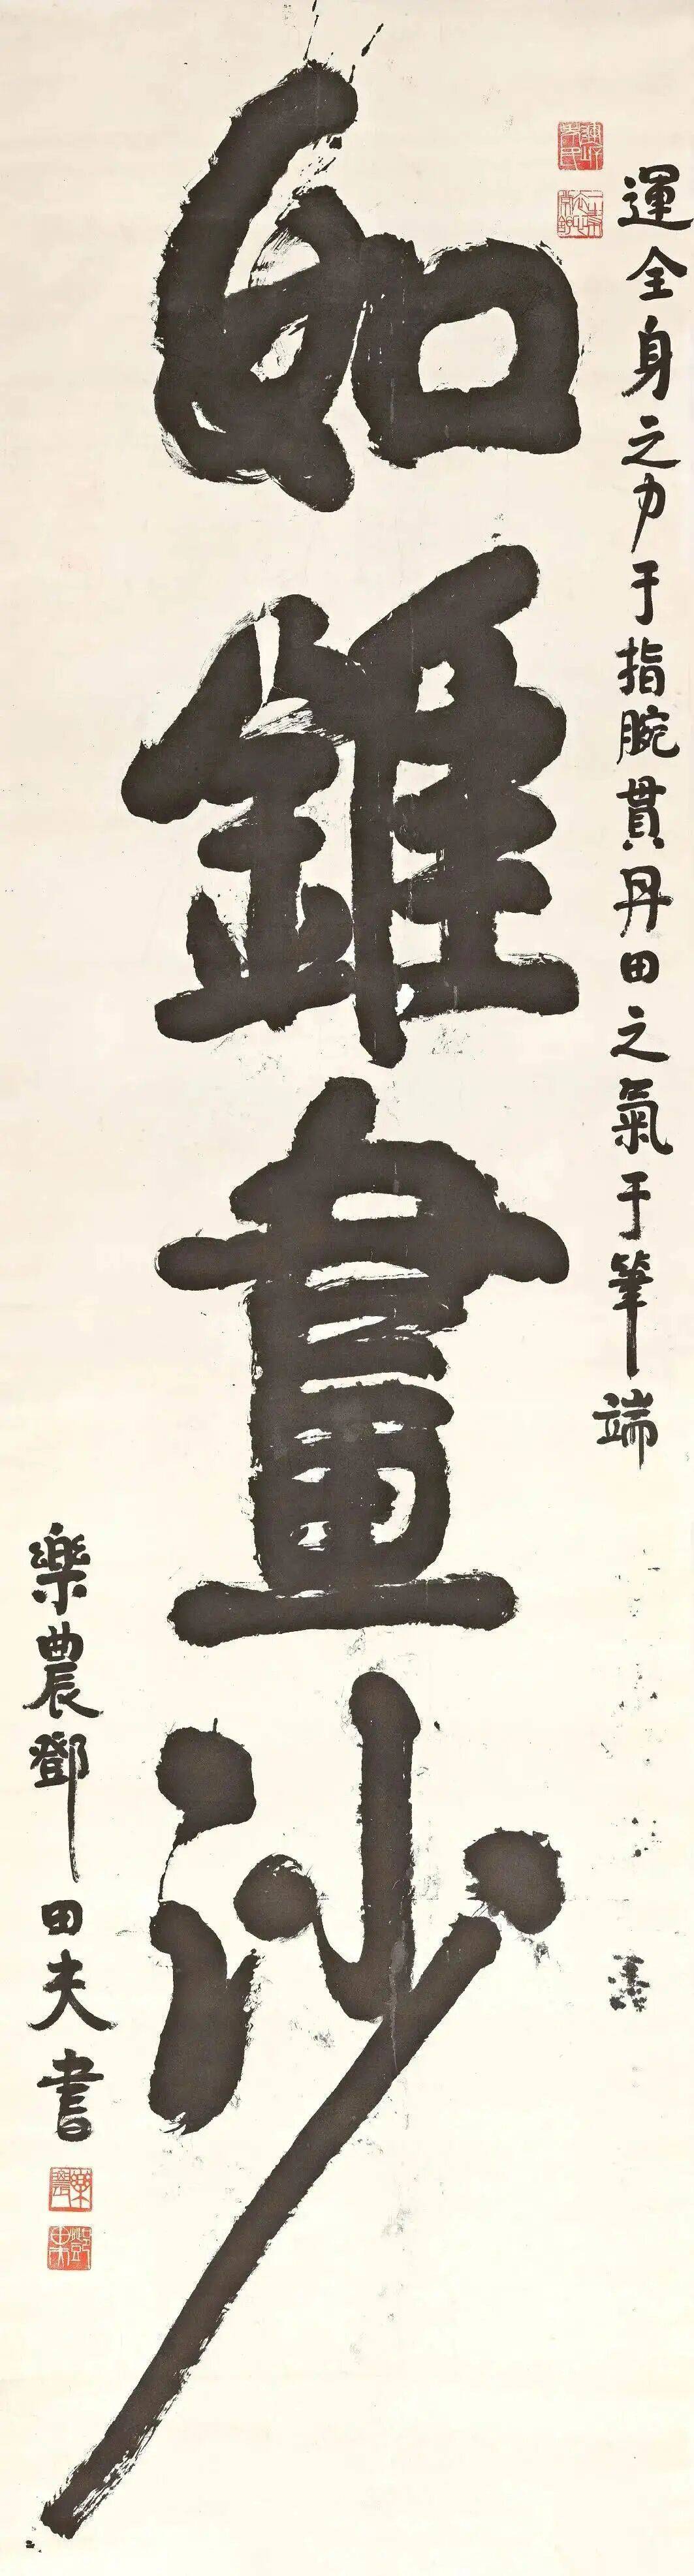 運全身之力于指腕貫丹田之氣于筆端
如錐畫沙
樂農鄧田夫書